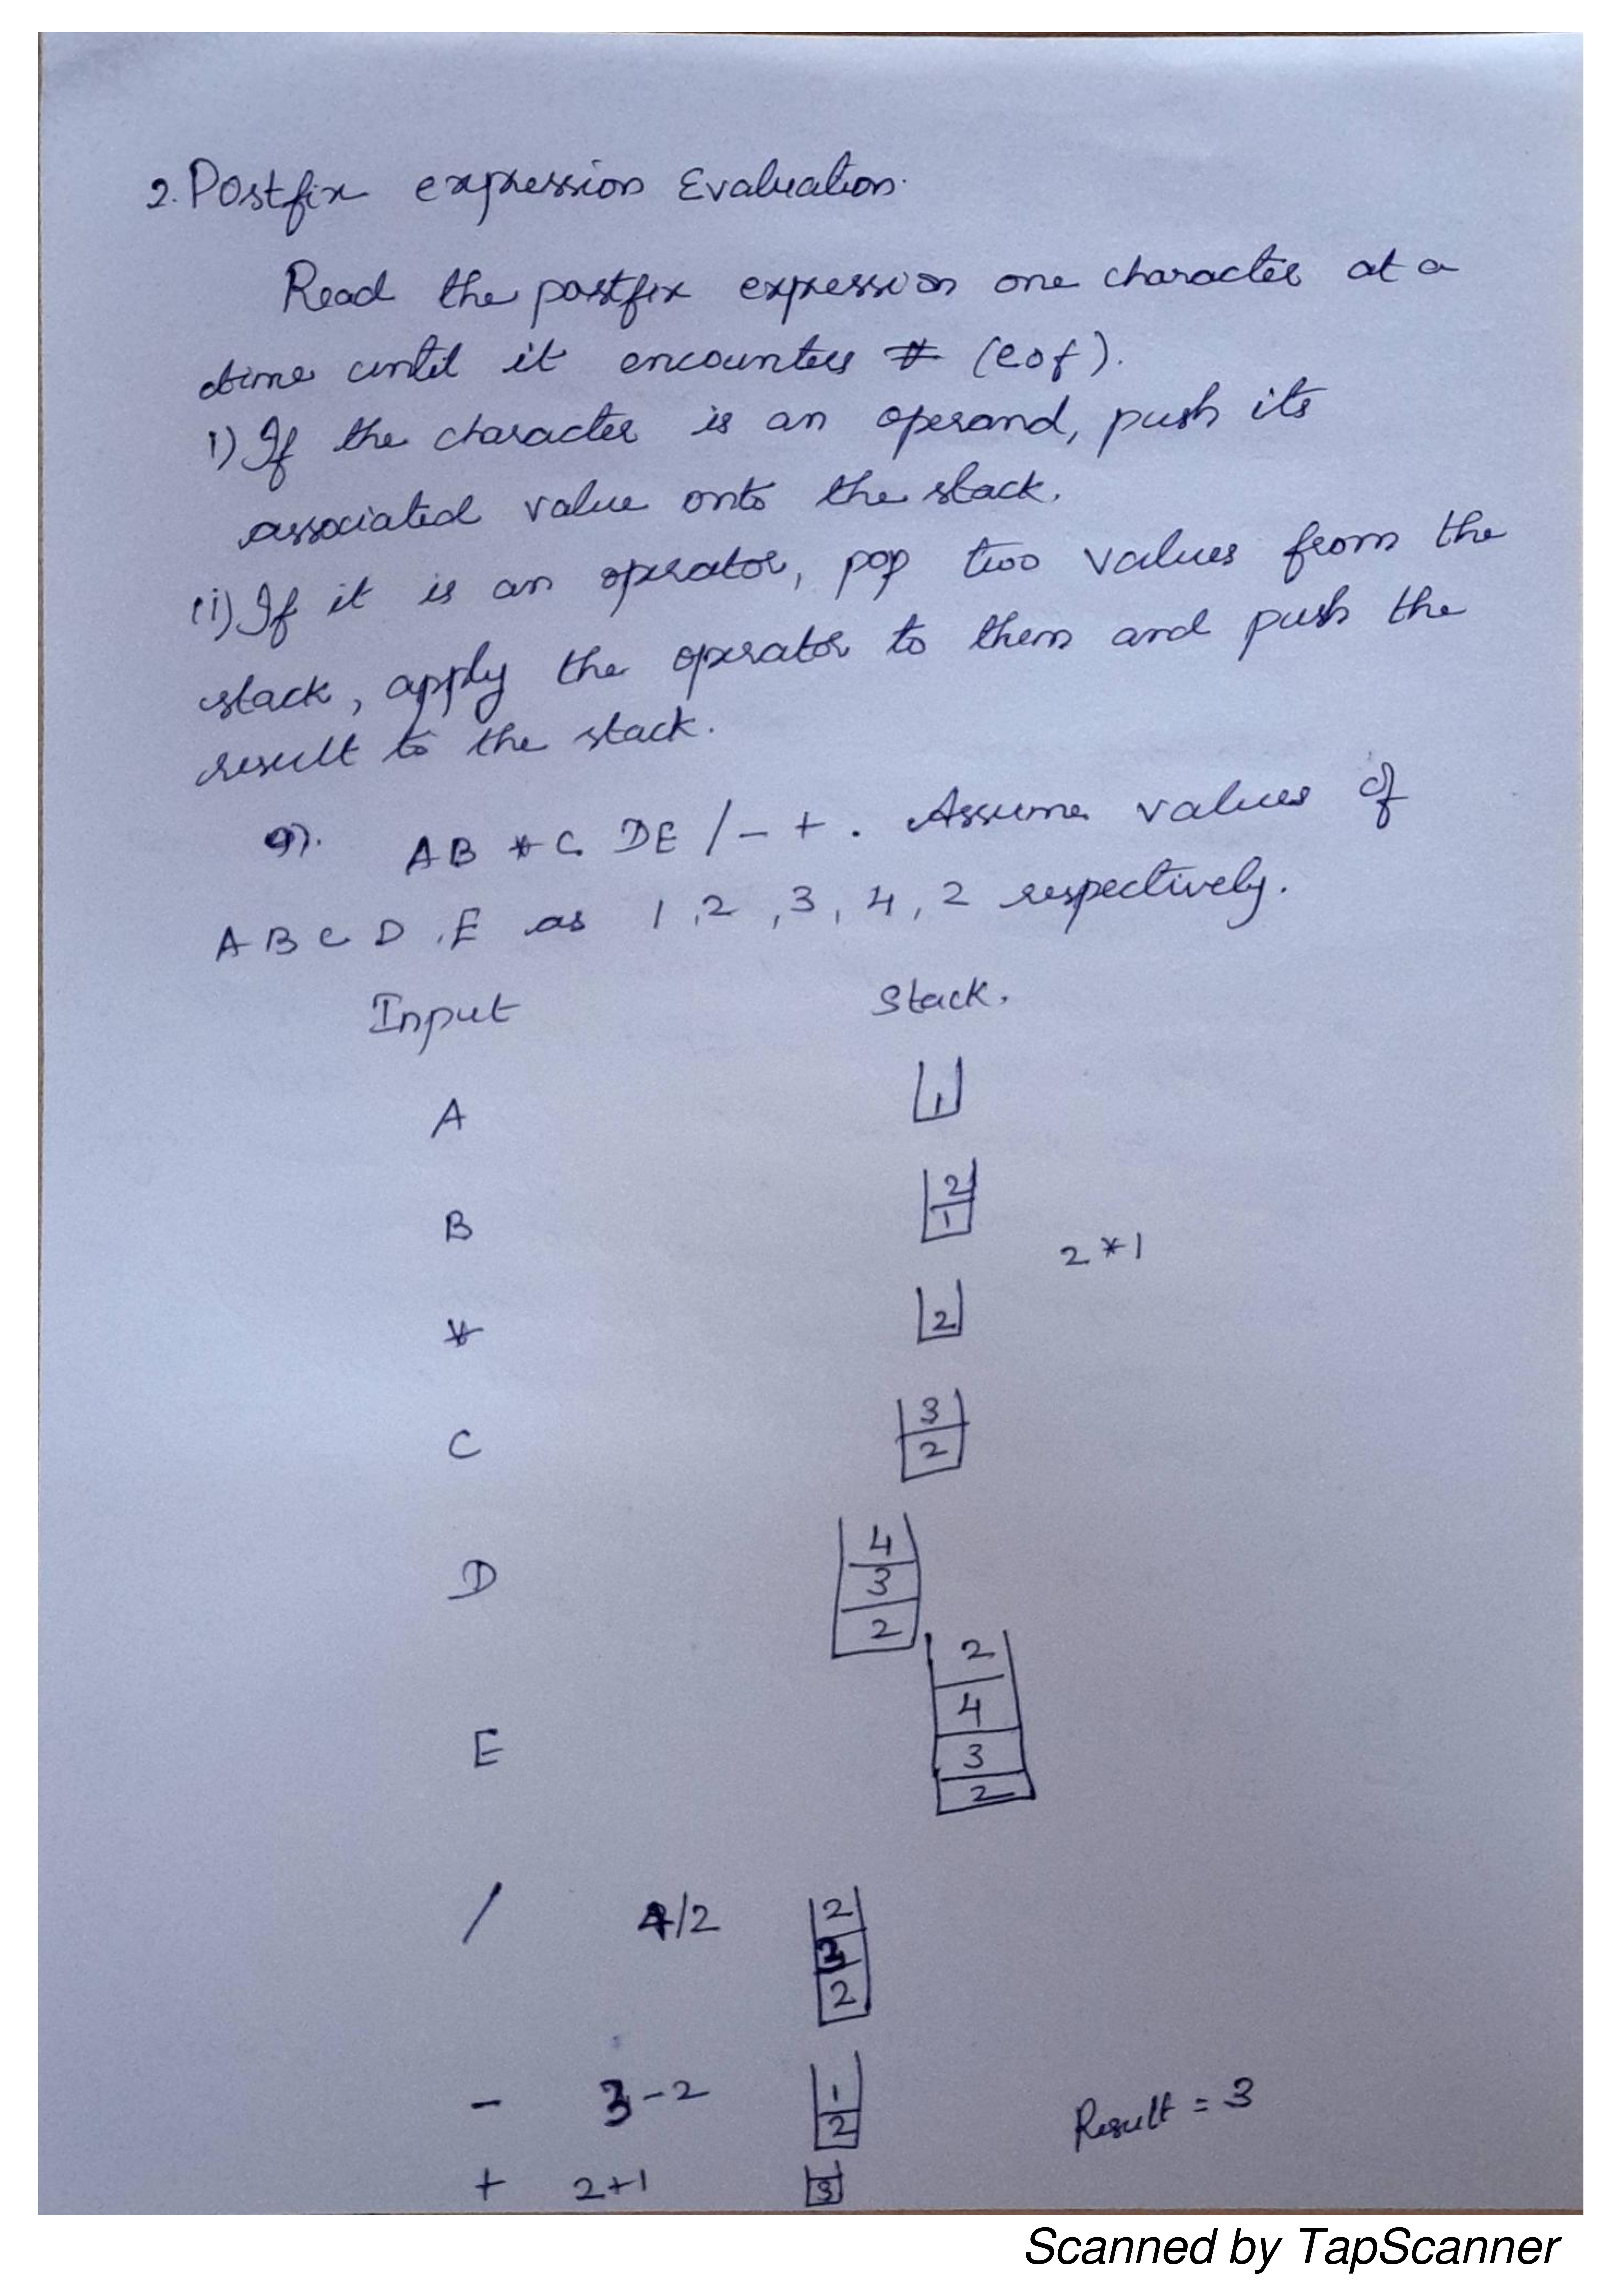 2. Postfix expression Evaluation.
Read the postfix expression one character at a
time until it encounters # (eof).
i) If the character is an operand, push its
associated value onto the stack.
ii) If it is an operator, pop two values from the
stack, apply the operator to them and push the
result to the stack.
AB * C DE / - + . Assume values of
A B C D , E as 1 , 2 , 3 , 4 , 2 respectively.
Input Stack.
A 1
B 2 1
2 * 1
* 2
C 3 2
D 4 3 2
E 2 4 3 2
/ 4/2 2 3 2
- 3-2 1 2
Result = 3
+ 2+1 3
Scanned by TapScanner